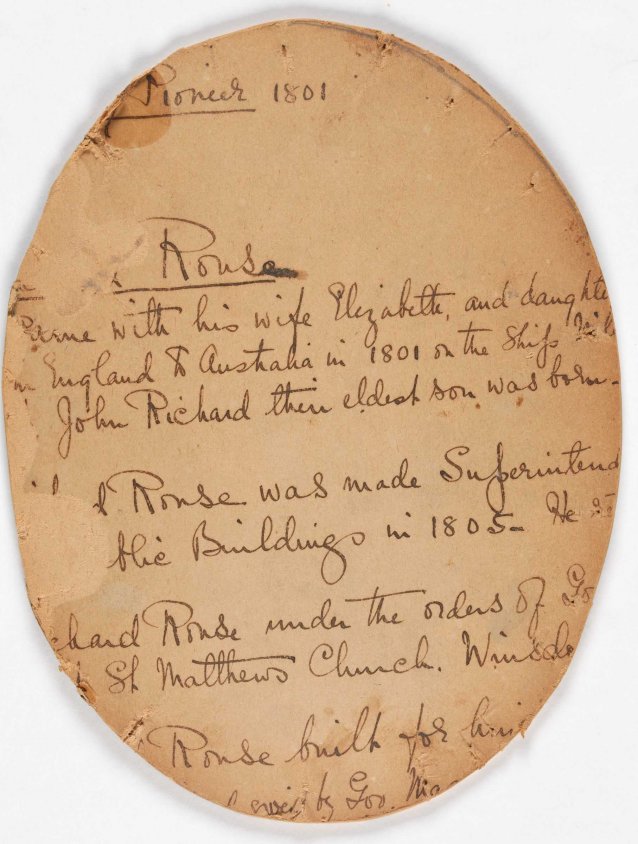 Pioneer 1801
Rouse
Came with his wife Elizabeth, and daughte
England to Australia in 1801 on the Ship
John Richard their eldest son was born -
Rouse was made Superintend
blic Buildings in 1805 - He
chard Rouse under the orders of Go
St Matthews Church. Winds
Rouse built for him
by Gov. Mac